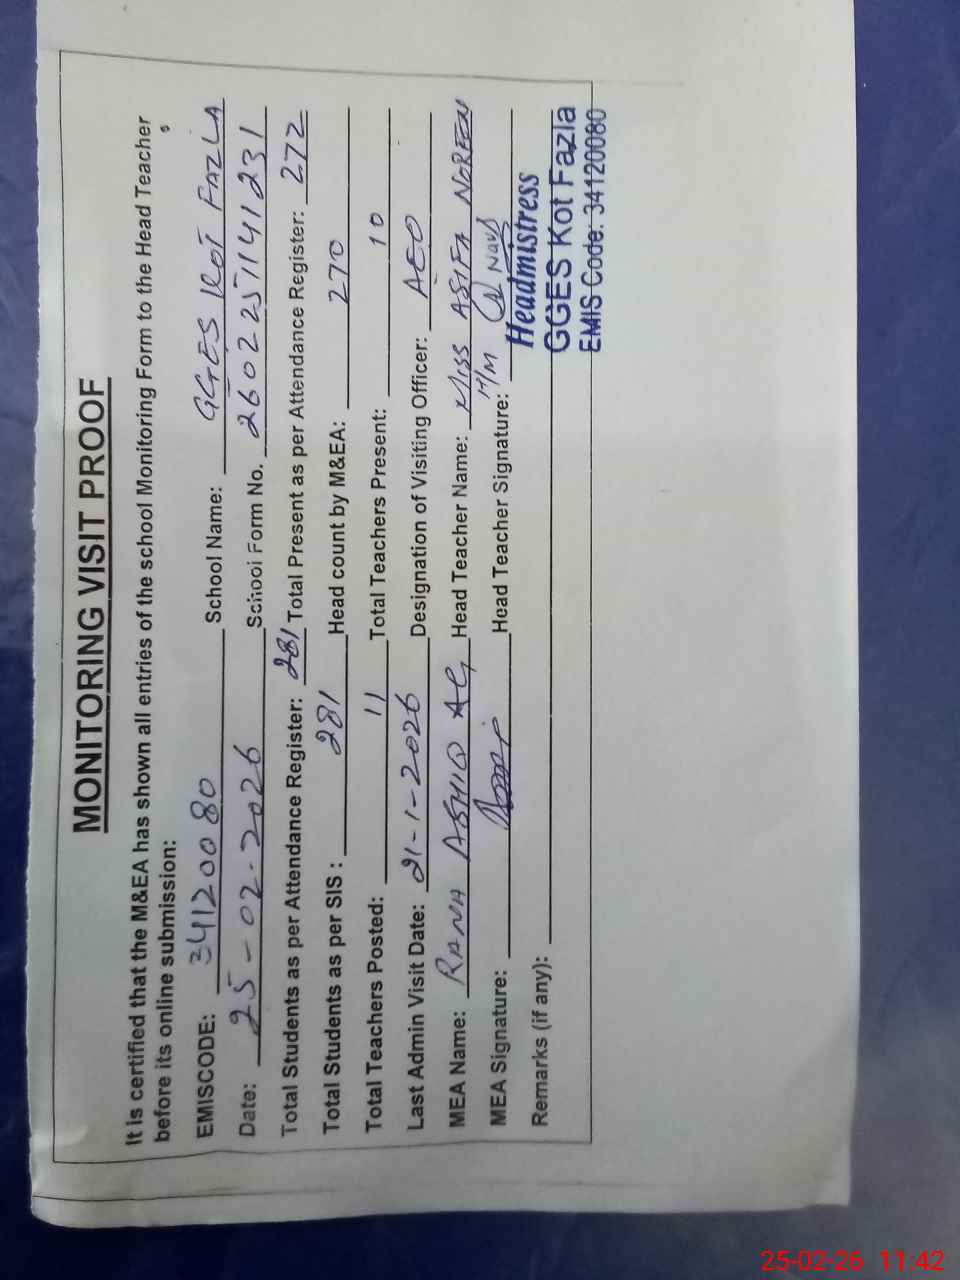 MONITORING VISIT PROOF
It is certified that the M&EA has shown all entries of the school Monitoring Form to the Head Teacher
before its online submission:
EMISCODE: 34120080 School Name: GGES KOT FAZLA
Date: 25-02-2026 School Form No. 26022511141231
Total Students as per Attendance Register: 281 Total Present as per Attendance Register: 272
Total Students as per SIS : 281 Head count by M&EA: 270
Total Teachers Posted: 11 Total Teachers Present: 10
Last Admin Visit Date: 21-1-2026 Designation of Visiting Officer: AEO
MEA Name: RANA ASHIQ Head Teacher Name: MISS ASIFA NOREEN
MEA Signature: Head Teacher Signature: H/M
Headmistress
Remarks (if any): GGES Kot Fazla
EMIS Code: 34120080
25-02-26 11:42